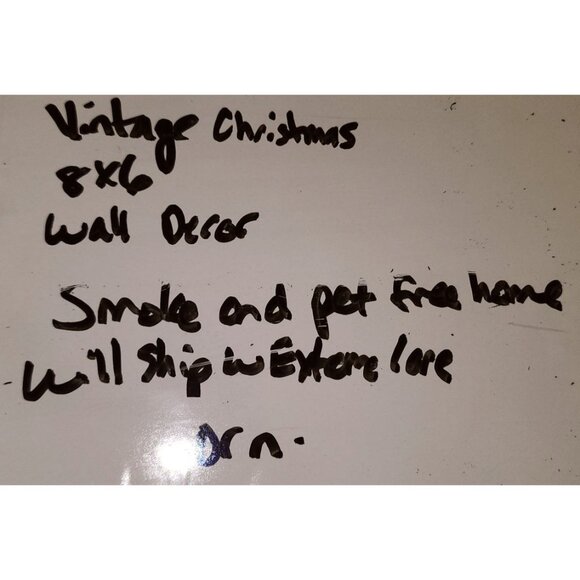 Vintage Christmas
8x6
Wall Decor
Smoke and pet free home
Will ship w Exteme Care
Orn.